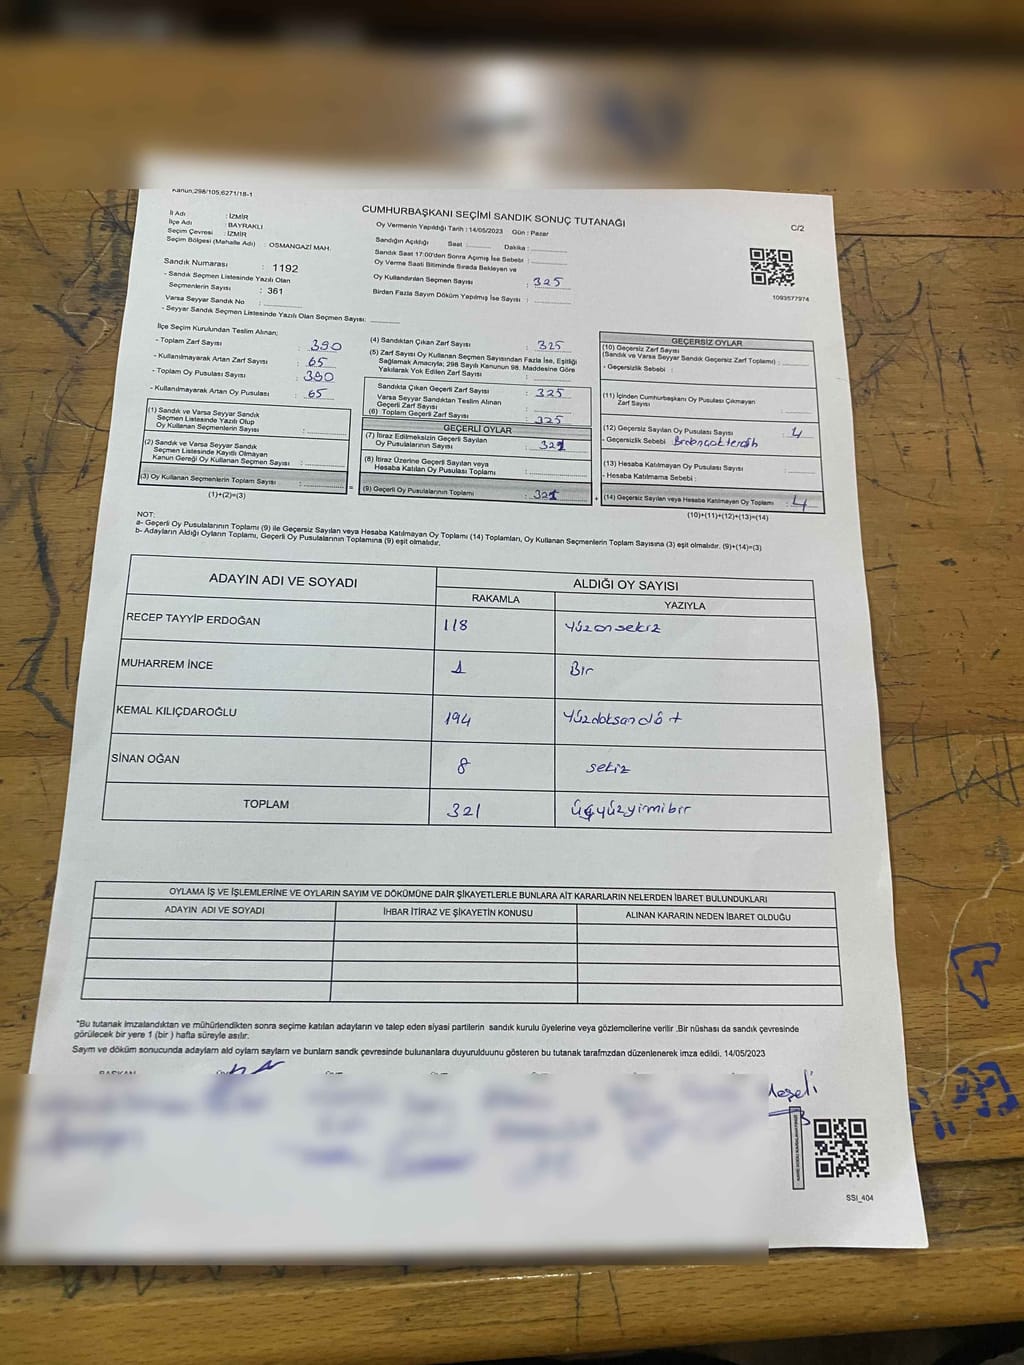 Kanun;298/105;6271/18-1
CUMHURBAŞKANI SEÇİMİ SANDIK SONUÇ TUTANAĞI
C/2
İl Adı : İZMİR
İlçe Adı : BAYRAKLI
Seçim Çevresi : İZMİR
Seçim Bölgesi (Mahalle Adı) : OSMANGAZİ MAH.
Oy Vermenin Yapıldığı Tarih : 14/05/2023 Gün : Pazar
Sandığın Açıldığı Saat Dakika :
Sandık Saat 17:00'den Sonra Açımış İse Sebebi :
Oy Verme Saati Bitiminde Sırada Bekleyen ve
Oy Kullandırılan Seçmen Sayısı : 325
Birden Fazla Sayım Döküm Yapılmış İse Sayısı :
1093577974
Sandık Numarası : 1192
- Sandık Seçmen Listesinde Yazılı Olan
Seçmenlerin Sayısı : 361
Varsa Seyyar Sandık No :
- Seyyar Sandık Seçmen Listesinde Yazılı Olan Seçmen Sayısı:
İlçe Seçim Kurulundan Teslim Alınan;
- Toplam Zarf Sayısı : 390
- Kullanılmayarak Artan Zarf Sayısı : 65
- Toplam Oy Pusulası Sayısı : 390
- Kullanılmayarak Artan Oy Pusulası : 65
(1) Sandık ve Varsa Seyyar Sandık
Seçmen Listesinde Yazılı Olup
Oy Kullanan Seçmenlerin Sayısı :
(2) Sandık ve Varsa Seyyar Sandık
Seçmen Listesinde Kayıtlı Olmayan
Kanun Gereği Oy Kullanan Seçmen Sayısı :
(3) Oy Kullanan Seçmenlerin Toplam Sayısı :
(1)+(2)=(3)
(4) Sandıktan Çıkan Zarf Sayısı : 325
(5) Zarf Sayısı Oy Kullanan Seçmen Sayısından Fazla İse, Eşitliği
Sağlamak Amacıyla; 298 Sayılı Kanunun 98. Maddesine Göre
Yakılarak Yok Edilen Zarf Sayısı :
Sandıkta Çıkan Geçerli Zarf Sayısı : 325
Varsa Seyyar Sandıktan Teslim Alınan
Geçerli Zarf Sayısı :
(6) Toplam Geçerli Zarf Sayısı : 325
GEÇERLİ OYLAR
(7) İtiraz Edilmeksizin Geçerli Sayılan
Oy Pusulalarının Sayısı : 321
(8) İtiraz Üzerine Geçerli Sayılan veya
Hesaba Katılan Oy Pusulası Toplamı :
=
(9) Geçerli Oy Pusulalarının Toplamı : 321
+
GEÇERSİZ OYLAR
(10) Geçersiz Zarf Sayısı
(Sandık ve Varsa Seyyar Sandık Geçersiz Zarf Toplamı) :
- Geçersizlik Sebebi :
(11) İçinden Cumhurbaşkanı Oy Pusulası Çıkmayan
Zarf Sayısı :
(12) Geçersiz Sayılan Oy Pusulası Sayısı : 4
- Geçersizlik Sebebi :
(13) Hesaba Katılmayan Oy Pusulası Sayısı :
- Hesaba Katılmama Sebebi :
(14) Geçersiz Sayılan veya Hesaba Katılmayan Oy Toplamı : 4
(10)+(11)+(12)+(13)=(14)
NOT:
a- Geçerli Oy Pusulalarının Toplamı (9) ile Geçersiz Sayılan veya Hesaba Katılmayan Oy Toplamı (14) Toplamları, Oy Kullanan Seçmenlerin Toplam Sayısına (3) eşit olmalıdır. (9)+(14)=(3)
b- Adayların Aldığı Oyların Toplamı, Geçerli Oy Pusulalarının Toplamına (9) eşit olmalıdır.
ADAYIN ADI VE SOYADI ALDIĞI OY SAYISI
RAKAMLA YAZIYLA
RECEP TAYYİP ERDOĞAN 118 Yüzonsekiz
MUHARREM İNCE 1 Bir
KEMAL KILIÇDAROĞLU 194 Yüzdoksandöt
SİNAN OĞAN 8 sekiz
TOPLAM 321 üçyüzyirmibir
OYLAMA İŞ VE İŞLEMLERİNE VE OYLARIN SAYIM VE DÖKÜMÜNE DAİR ŞİKAYETLERLE BUNLARA AİT KARARLARIN NELERDEN İBARET BULUNDUKLARI
ADAYIN ADI VE SOYADI İHBAR İTİRAZ VE ŞİKAYETİN KONUSU ALINAN KARARIN NEDEN İBARET OLDUĞU
*Bu tutanak imzalandıktan ve mühürlendikten sonra seçime katılan adayların ve talep eden siyasi partilerin sandık kurulu üyelerine veya gözlemcilerine verilir .Bir nüshası da sandık çevresinde
görülecek bir yere 1 (bir ) hafta süreyle asılır.
Sayım ve döküm sonucunda adayların aldı oyların sayların ve bunların sandk çevresinde bulunanlara duyurulduunu gösteren bu tutanak tarafmzdan düzenlenerek imza edildi. 14/05/2023
BAŞKAN
SSI_404